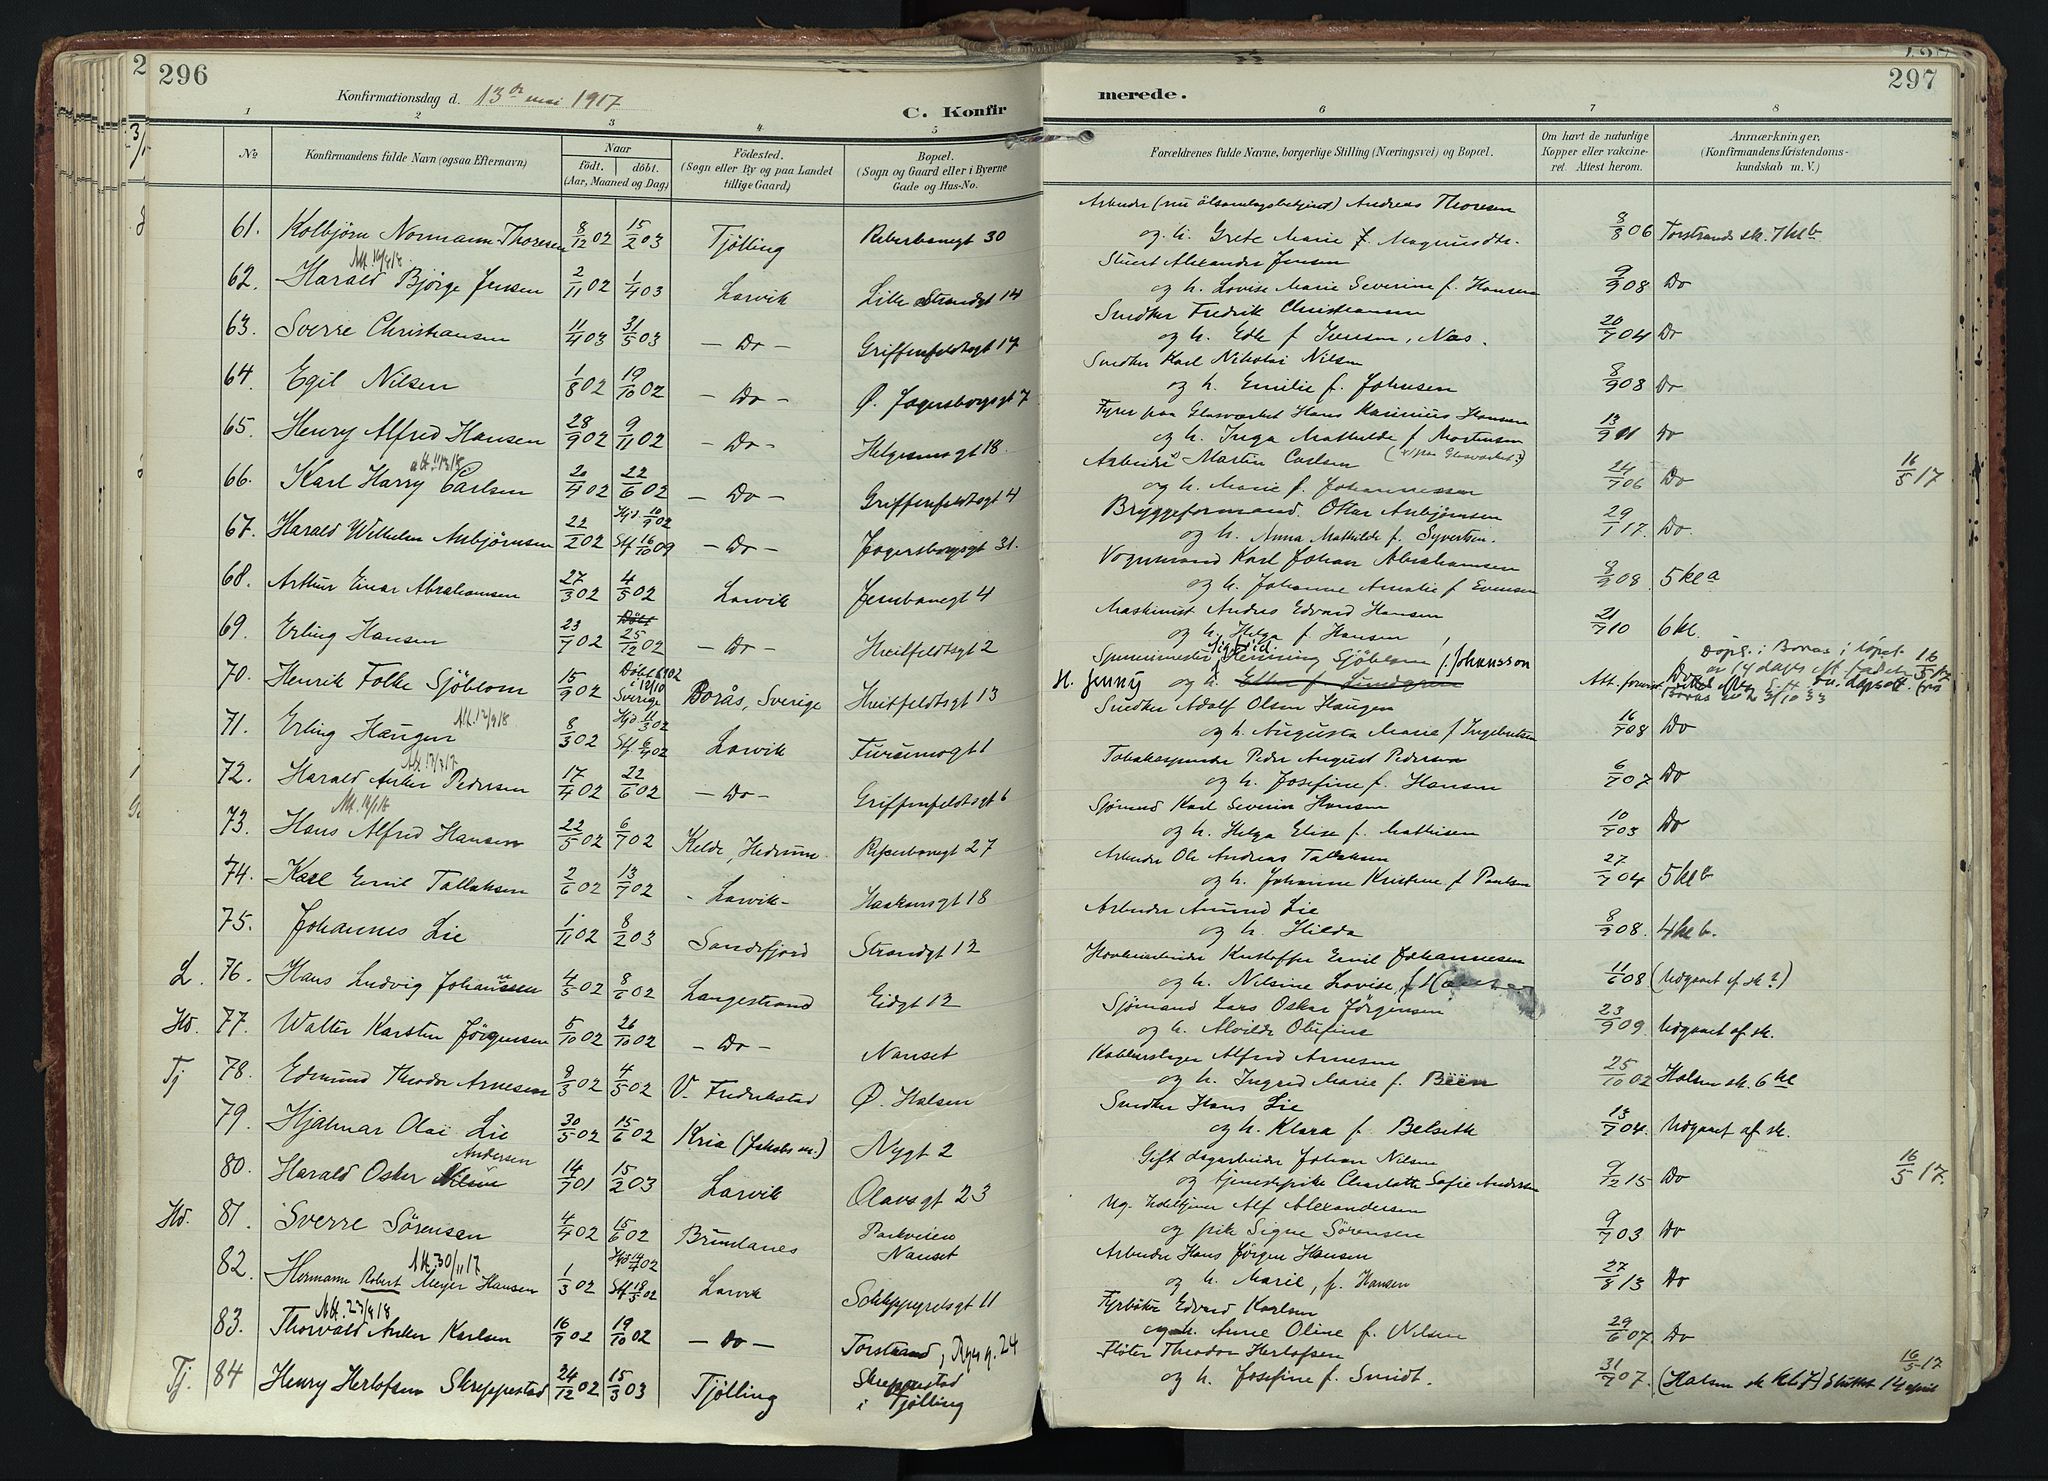 296
Konfirmationsdag d. 13de mai 1917
C. Konfir
1 2 3 4 5
No
Konfirmandens fulde Navn (ogsaa Efternavn)
Naar
födt. döbt.
(Aar, Maaned og Dag)
Födested.
(Sogn eller By og paa Landet
tillige Gaard)
Bopæl.
(Sogn og Gaard eller i Byerne
Gade og Hus-No.
61. Kolbjörn Normann Thoresen 8/12 02 15/2 03 Tjölling 30
62. Harald Bjørge Jensen 2/11 02 1/4 03 Larvik Lille Strandgt 14
63. Sverre Christiansen 11/4 03 31/5 03 — Do — Griffenfeldtsgt 17
64. Egil Nilsen 1/8 02 19/10 02 — Do — Ø. Jegersborgsgt 7
65. Henry Alfred Hansen 28/9 02 9/11 02 — Do — Helgesensgt 18.
66. Karl Harry Carlsen 2/4 02 22/6 02 — Do — Griffenfeldtsgt 4
67. Harald Wilhelm Anbjørnsen 22/2 02 Hjd. 10/9 02 Stf 16/10 09 — Do — Jegersborgsgt 31.
68. Arthur Einar Abrahamsen 27/3 02 4/5 02 Larvik Jernbanegt 4
69. Erling Hansen 23/7 02 25/12 02 — Do — Hvitfeldtsgt 2
70. Henrik Folke Sjöblom 15/9 02 Döbt i Sverige Borås, Sverige Hvitfeldtsgt 13
71. Erling Haugen 8/3 02 Hjd. 11/3 02 Larvik Furumogt 1
72. Harald Anker Pedersen 17/4 02 22/6 02 — Do — Griffenfeldtsgt 6
73. Hans Alfred Hansen 22/5 02 6/7 02 Kelde, Hedrum 27
74. Karl Emil Tallaksen 2/6 02 13/7 02 - Larvik - Haakonsgt 18
75. Johannes Lie 1/11 02 8/2 03 Sandefjord Strandgt 12
L. 76. Hans Ludvig Johannesen 4/5 02 8/6 02 Langestrand Eidgt 12
Hd. 77. Walter Karsten Jörgensen 5/10 02 26/10 02 — Do — Nanset
Tj 78. Edmund Theodor Arnesen 8/3 02 4/5 02 V. Fredrikstad Ø. Halsen
79. Hjalmar Olai Lie 30/5 02 15/6 02 Kria (Jakobs m.) Nygt 2
80. Harald Oskar Nilsen Andersen 14/7 01 15/2 03 Larvik Olavsgt 23
Hd. 81. Sverre Sörensen 4/4 02 15/6 02 Brunlanes Parkveien Nanset
82. Att. 30/11 17 Hermann Robert Meyer Hansen 1/3 02 Larvik 11
83. Att. 23/4 18 Thorvald Anker Karlsen 16/9 02 19/10 02 — Do — Torstrand, 24
Tj. 84 Henry Herlofsen Skreppestad 24/12 02 15/3 03 Tjölling Skreppestad i Tjölling
297
merede.
6 7 8
Forældrenes fulde Navne, borgerlige Stilling (Næringsvei) og Bopæl.
Om havt de naturlige
Kopper eller vakcine-
ret. Attest herom.
Anmærkninger,
(Konfirmandens Kristendoms-
kundskab m. V.)
Arbeider (nu ölsamlagsbetjent) Andreas Thoresen
og h. Grete Marie f. Magnusdtr. 8/8 06 Torstrands sk. 7 kl b
Stuert Alexander Jensen
og h. Lovise Marie Severine f. Hansen 9/9 08 Do
Snedker Fredrik Christiansen
og h. Edle f. Iversen, Næs. 20/7 04 Do
Snedker Karl Nikolai Nilsen
og h. Emilie f. Johnsen 8/9 08 Do
Fyrer paa Glasværket Hans Kasinius Hansen
og h. Inga Mathilde f. Mortensen 13/9 11 Do
Arbeider Martin Carlsen
og h. Marie f. Johannessen 24/7 06 Do 16/5 17
Bryggeformand Oskar Anbjørnsen
og h. Anna Mathilde f. Syvertsen. 29/1 17. Do.
Vognmand Karl Johan Abrahamsen
og h. Johanne Amalie f. Evensen 8/9 08 5 kl a
Maskinist Anders Edvard Hansen
og h. Helga f. Hansen 21/7 10 6 kl.
Spinnimester Henning Sjöblom f. Johansson
H. Jenny og h. Ellen f. Lundgren Att. forevist Do 16/5 17
Snedker Adolf Olsen Haugen
og h. Augusta Marie f. Ingebretsen 16/7 08 Do
Tobakspinder Peder August Pedersen
og h. Josefine f. Hansen 6/7 07 Do
Sjömand Karl Severin Hansen
og h. Helga Elise f. Mathisen 10/7 03 Do
Arbeider Ole Andreas Tallaksen
og h. Johanne Kristine f. Paulsen 27/7 04 5 kl b
Arbeider Amund Lie
og h. Hilda 8/9 08. 4 kl b.
Kristoffer Emil Johannesen
og h. Nilsine Lovise 11/6 08 (Udgaaet af sk?)
Sjömand Lars Oskar Jörgensen
og h. Alvilde Olufine 23/9 09. Udgaaet af sk.
Alfred Arnesen
og h. Ingrid Marie f. Been 25/10 02 Halsen sk. 6 kl
Snedker Hans Lie
og h. Klara f. Belseth 13/7 04. Udgaaet af sk.
Gift dagarbeider Johan Nilsen
og tjenestepike Charlotte Sofie Andersen 9/2 15 Do 16/5 17.
Ug. Alf Alexandersen
og pike Signe Sörensen 9/7 03 Do
Arbeider Hans Jörgen Hansen
og h. Marie, f. Hansen 27/8 13 Do
Fyrböter Edvard Karlsen
og h. Anne Oline f. Nilsen 29/6 07. Do
Fløter Theodor Herlofsen
og h. Josefine f. Smidt. 31/7 07. (Halsen sk kl 7) sluttet 14 april 16/5 17